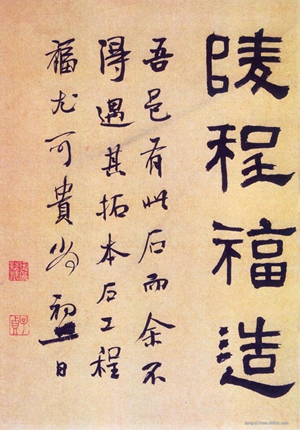 陵程福造
吾邑有此石而余不
得遇其拓本石工程
福尤可貴 日